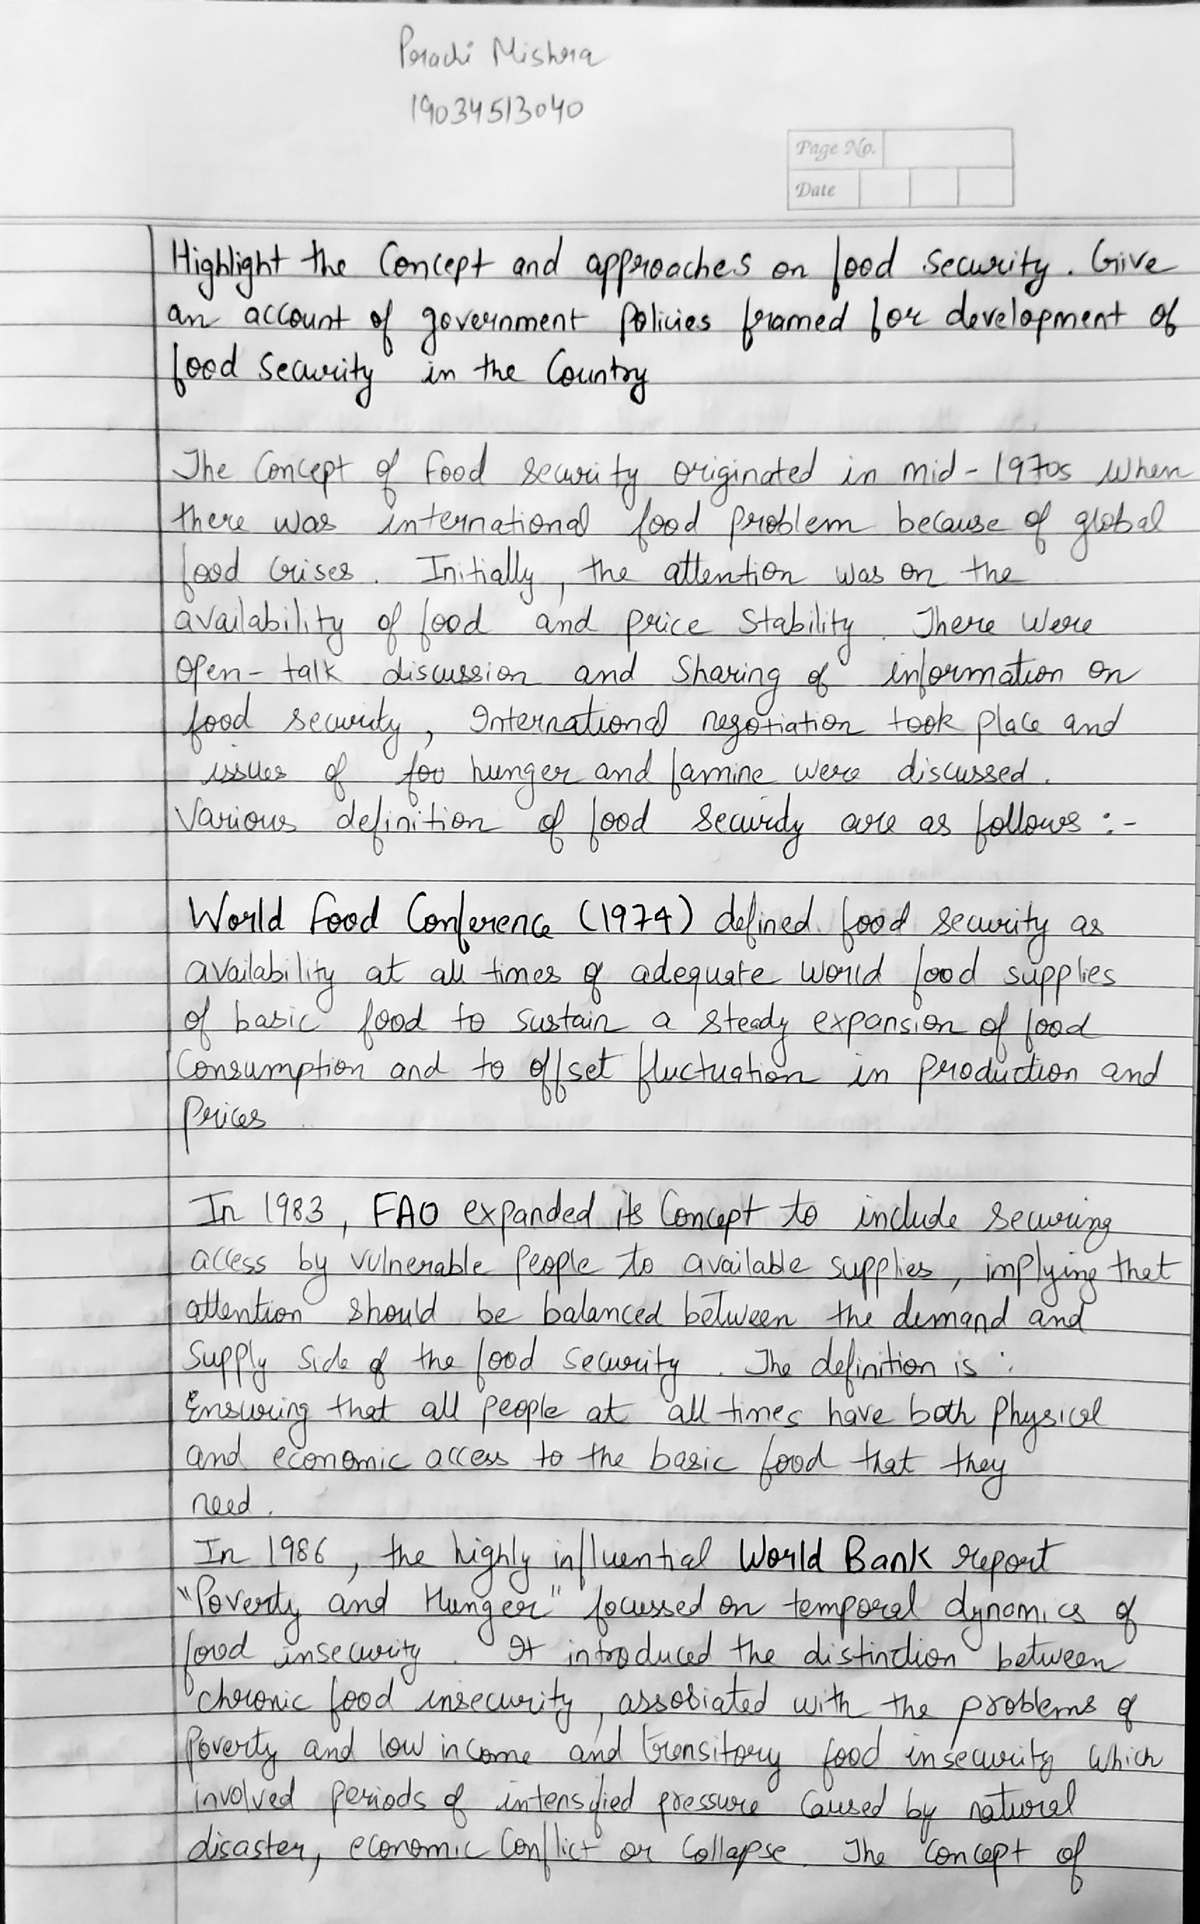 Prachi Mishra
19034513040
Page No.
Date
Highlight the Concept and approaches on food security. Give
an account of government Policies framed for development of
food security in the Country
The Concept of Food security originated in mid-1970s when
there was international food problem because of global
food crises. Initially, the attention was on the
availability of food and price stability. There were
open-talk discussion and sharing of information on
food security, International negotiation took place and
issues of foo hunger and famine were discussed.
Various definition of food security are as follows :-
World Food Conference (1974) defined food security as
availability at all times of adequate world food supplies
of basic food to sustain a steady expansion of food
Consumption and to offset fluctuation in production and
prices
In 1983, FAO expanded its Concept to include securing
access by vulnerable people to available supplies, implying that
attention should be balanced between the demand and
supply side of the food security. The definition is :
Ensuring that all people at all times have both physical
and economic access to the basic food that they
need.
In 1986, the highly influential World Bank report
"Poverty and Hunger" focussed on temporal dynamics of
food insecurity. It introduced the distinction between
chronic food insecurity, assosiated with the problems of
poverty and low income and transitory food insecurity which
involved periods of intensified pressure caused by natural
disaster, economic conflict or collapse. The concept of